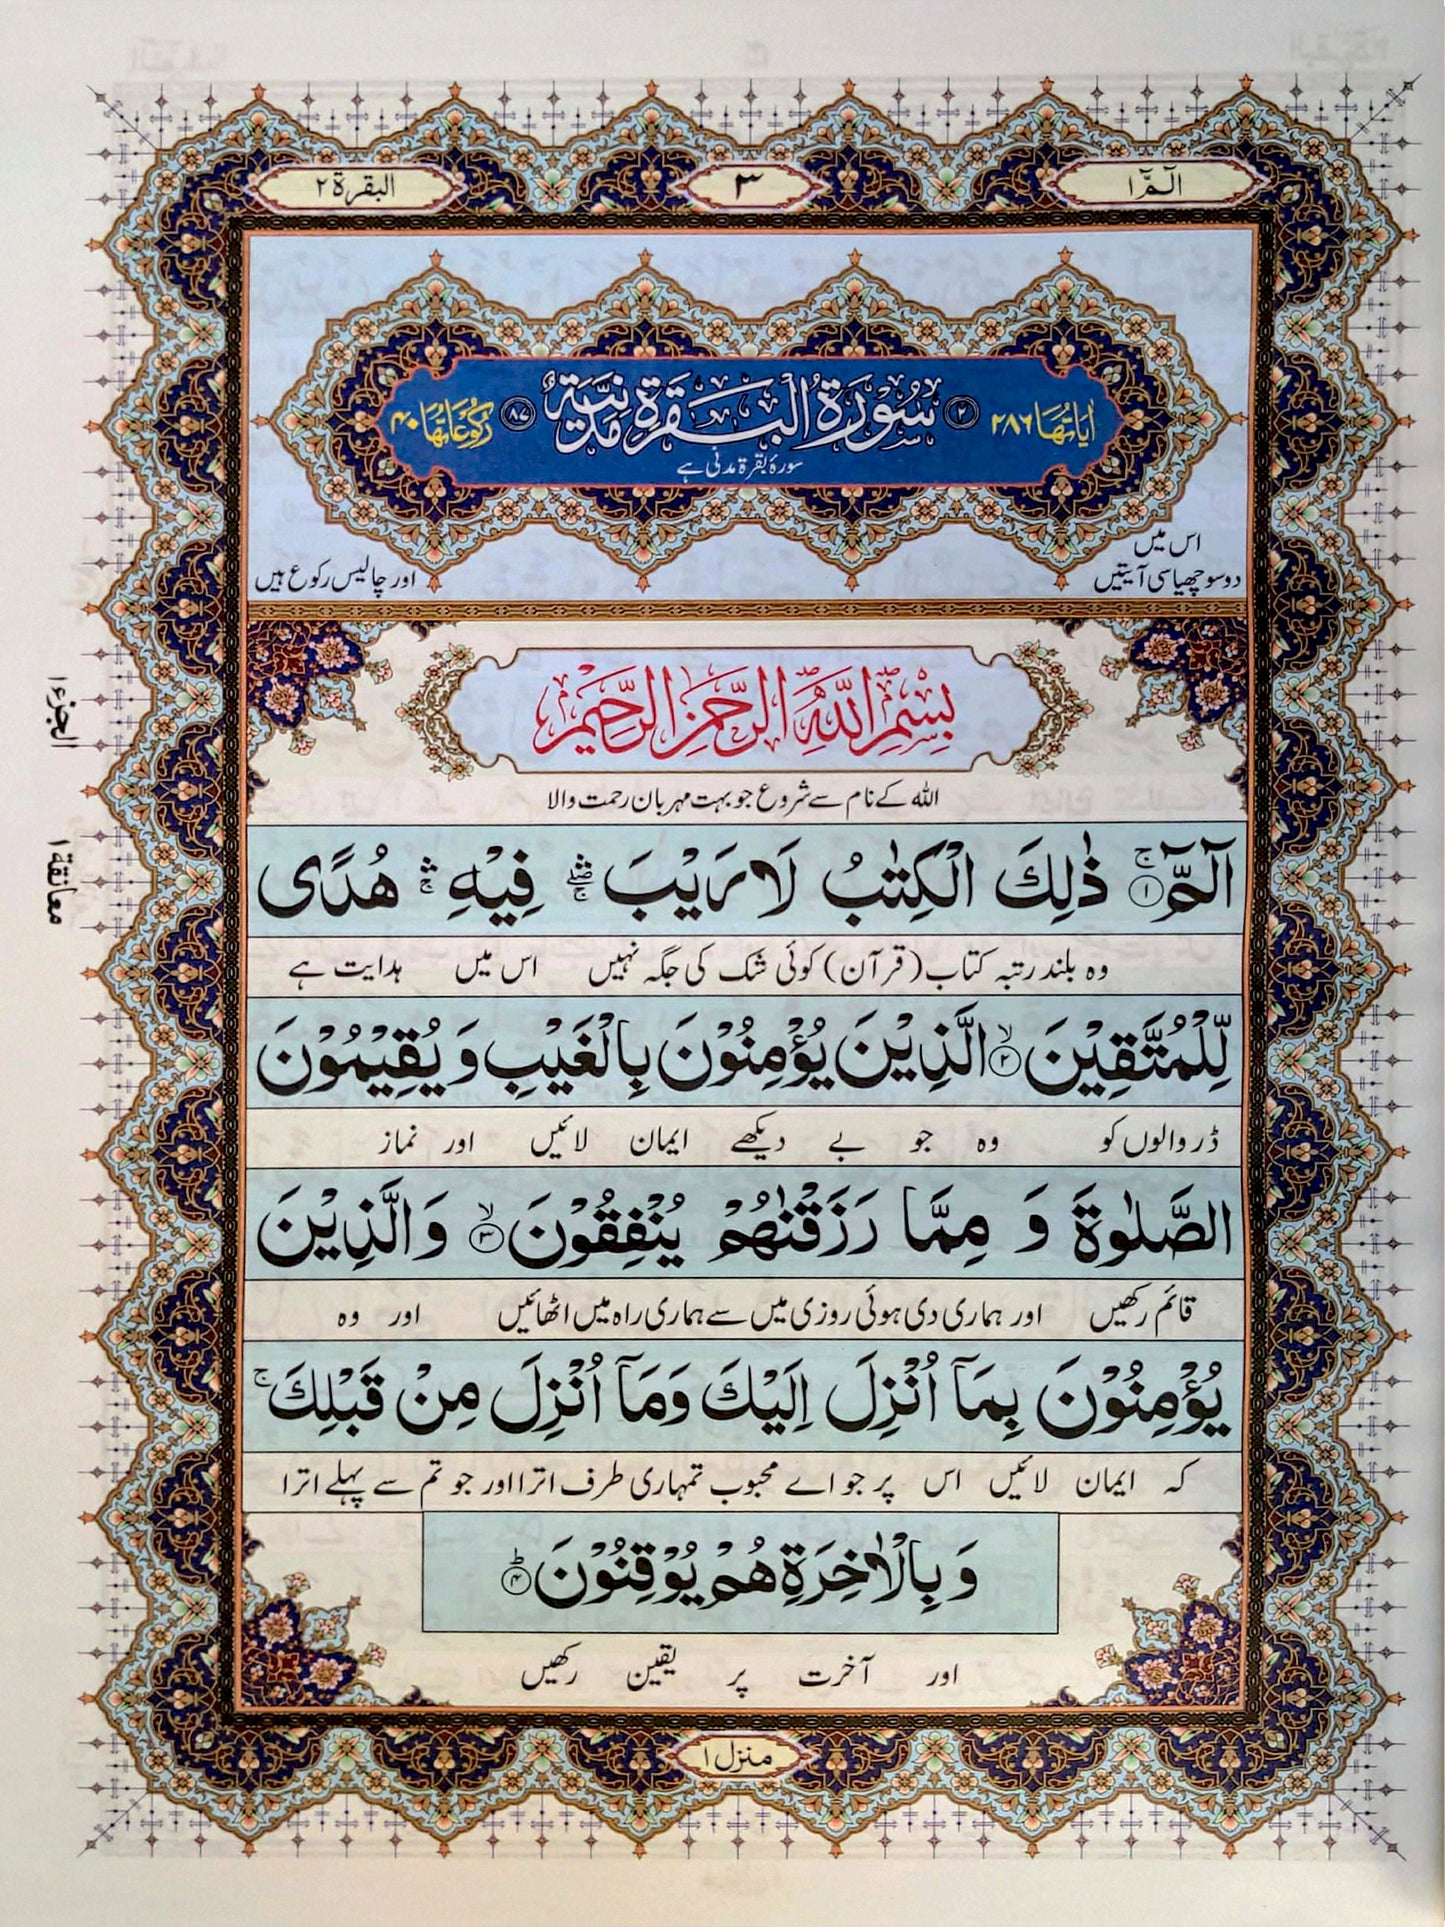 الٓمّٓ ۱
۳
البقرة ۲
اٰيَاتُهَا ۲۸۶
۲
سُوْرَةُ الْبَقَرَةِ مَدَنِيَّةٌ
۸۷
رُكُوْعَاتُهَا ۴۰
سورۂ بقرۃ مدنی ہے
اس میں
دو سو چھیاسی آیتیں
اور چالیس رکوع ہیں
بِسْمِ اللّٰهِ الرَّحْمٰنِ الرَّحِيْمِ
اللہ کے نام سے شروع جو بہت مہربان رحمت والا
الٓمّٓ ۚ‏﴿۱﴾ ذٰلِكَ الْكِتٰبُ لَا رَيْبَ ۛۖۚ فِيْهِ ۛۚ هُدًى
وہ بلند رتبہ کتاب (قرآن) کوئی شک کی جگہ نہیں اس میں ہدایت ہے
لِّلْمُتَّقِيْنَ ۙ‏﴿۲﴾ الَّذِيْنَ يُؤْمِنُوْنَ بِالْغَيْبِ وَ يُقِيْمُوْنَ
ڈر والوں کو وہ جو بے دیکھے ایمان لائیں اور نماز
الصَّلٰوةَ وَ مِمَّا رَزَقْنٰهُمْ يُنْفِقُوْنَ ۙ‏﴿۳﴾ وَ الَّذِيْنَ
قائم رکھیں اور ہماری دی ہوئی روزی میں سے ہماری راہ میں اٹھائیں اور وہ
يُؤْمِنُوْنَ بِمَاۤ اُنْزِلَ اِلَيْكَ وَمَاۤ اُنْزِلَ مِنْ قَبْلِكَ ۚ
کہ ایمان لائیں اس پر جو اے محبوب تمہاری طرف اترا اور جو تم سے پہلے اترا
وَ بِالْاٰخِرَةِ هُمْ يُوْقِنُوْنَ ؕ‏﴿۴﴾
اور آخرت پر یقین رکھیں
منزل ۱
الجزء ۱
معانقة ۱